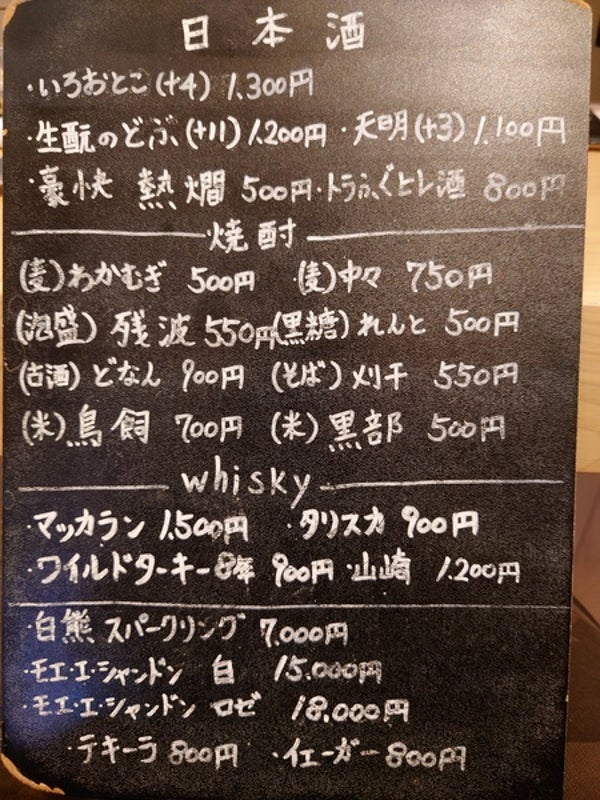 日本酒
・いろおとこ(+4) 1.300円
・生酛のどぶ(+11) 1.200円 ・天明(+3) 1.100円
・豪快 熱燗 500円・トラふぐヒレ酒 800円
焼酎
(麦)わかむぎ 500円 (麦)中々 750円
(泡盛) 残波 550円 (黒糖)れんと 500円
(古酒)どなん 900円 (そば)刈干 550円
(米)鳥飼 700円 (米)黒部 500円
whisky
・マッカラン 1.500円 ・タリスカ 900円
・ワイルドターキー8年 900円 ・山崎 1.200円
・白熊 スパークリング 7.000円
・モエ・エ・シャンドン 白 15.000円
・モエ・エ・シャンドン ロゼ 18.000円
・テキーラ 800円 ・イエーガー 800円